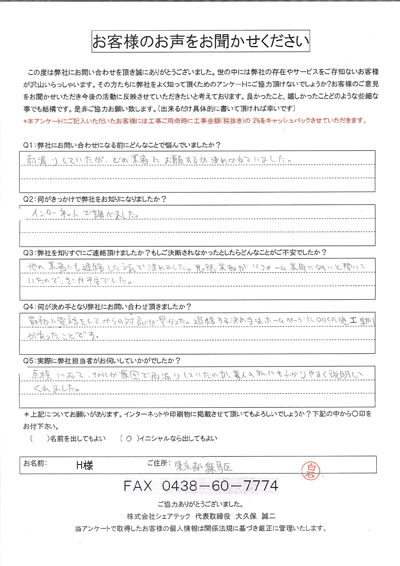 お客様のお声をお聞かせください
この度は弊社にお問い合わせを頂き誠にありがとうございました。世の中には弊社の存在やサービスをご存知ないお客様
が沢山いらっしゃいます。その方たちに弊社をよく知って頂くためのアンケートにご協力頂けないでしょうか?お客様のご意見
をお聞かせいただき今後の活動に反映させていただきたいと考えております。良かったこと、嬉しかったことどのような些細な
事でも結構です。是非ご協力お願い致します。(出来るだけ具体的に書いて頂ければ幸いです)
*本アンケートにご記入いただいたお客様には工事ご用命時に工事金額(税抜き)の2%をキャッシュバックさせていただきます。
Q1:弊社にお問い合わせになる前にどんなことで悩んでいましたか?
雨漏りしていたが、どの業者にお願いするか決めかねていました。
Q2:何がきっかけで弊社をお知りになりましたか?
インターネットで調べました。
Q3:弊社を知りすぐにご連絡頂けましたか?もしご決断されなかったとしたらどんなことがご不安でしたか?
他の業者にも連絡した
いたので、不安でした。
Q4:何が決め手となり弊社にお問い合わせ頂きましたか?
最初に電話をしてからの対応が早かった。連絡する決め手はホームページに
があったことです。
Q5:実際に弊社担当者がお伺いしていかがでしたか?
点検において、なにが原因で雨漏りしていたのか、素人の私にもわかりやすく説明して
くれました。
*上記についてお願いがあります。インターネットや印刷物に掲載させて頂いてもよろしいでしょうか?下記の中から〇印を
お付け下さい。
( )名前を出してもよい (〇)イニシャルなら出してもよい
お名前: H様 ご住所: 東京都練馬区
FAX 0438-60-7774
ご協力ありがとうございました。
株式会社シェアテック 代表取締役 大久保 誠二
当アンケートで取得したお客様の個人情報は関係法規に基づき厳正に管理いたします。